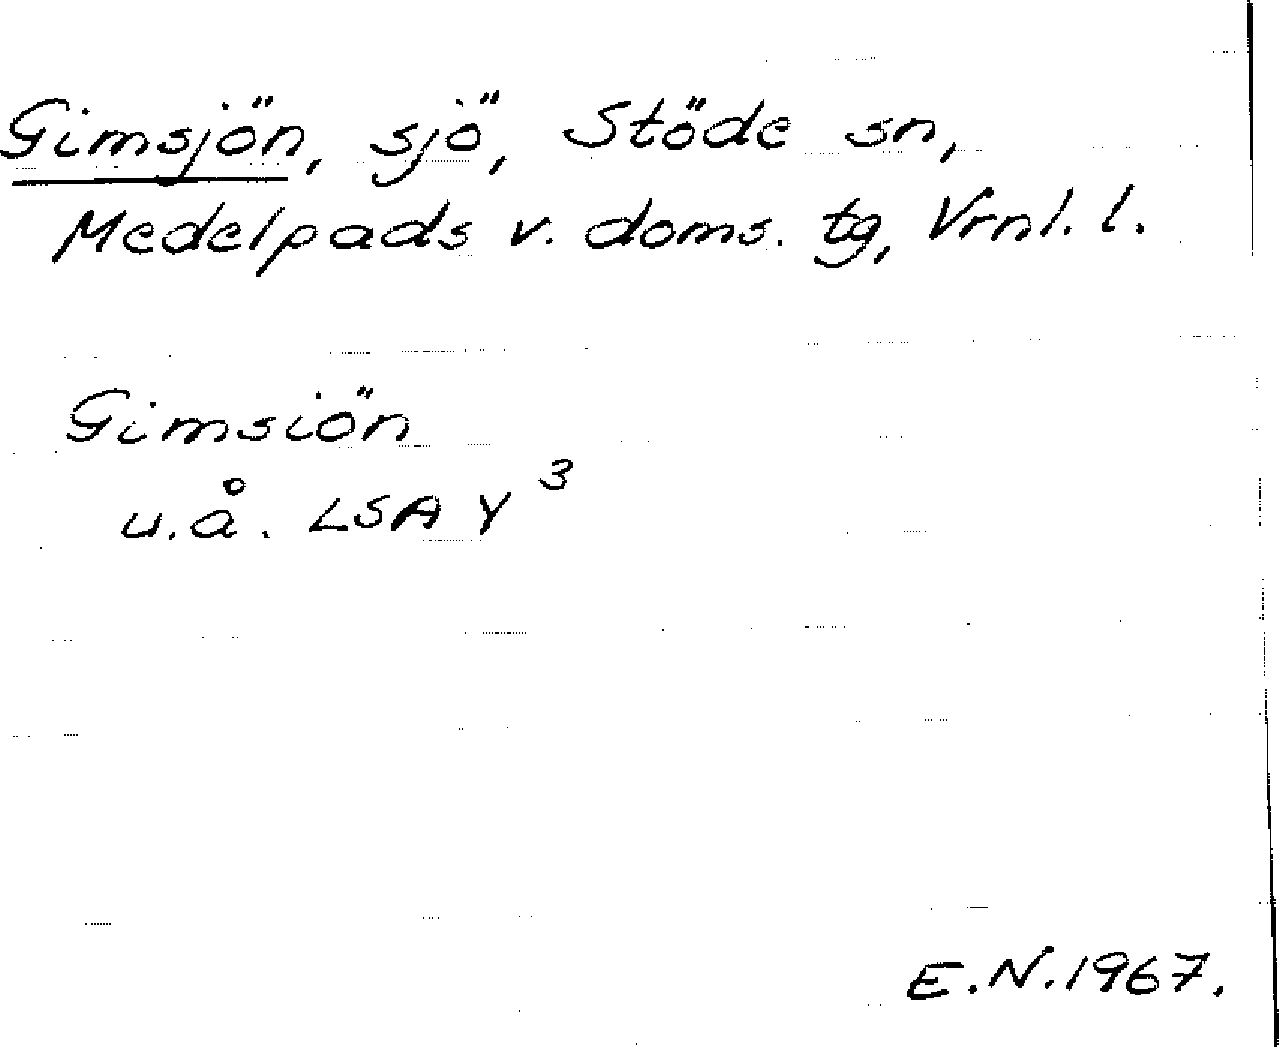 Gimsjön, sjö, Stöde sn,
Medelpads v. doms. tg, Vrnl. l.
Gimsiön
u.å. LSA Y 3
E.N. 1967.